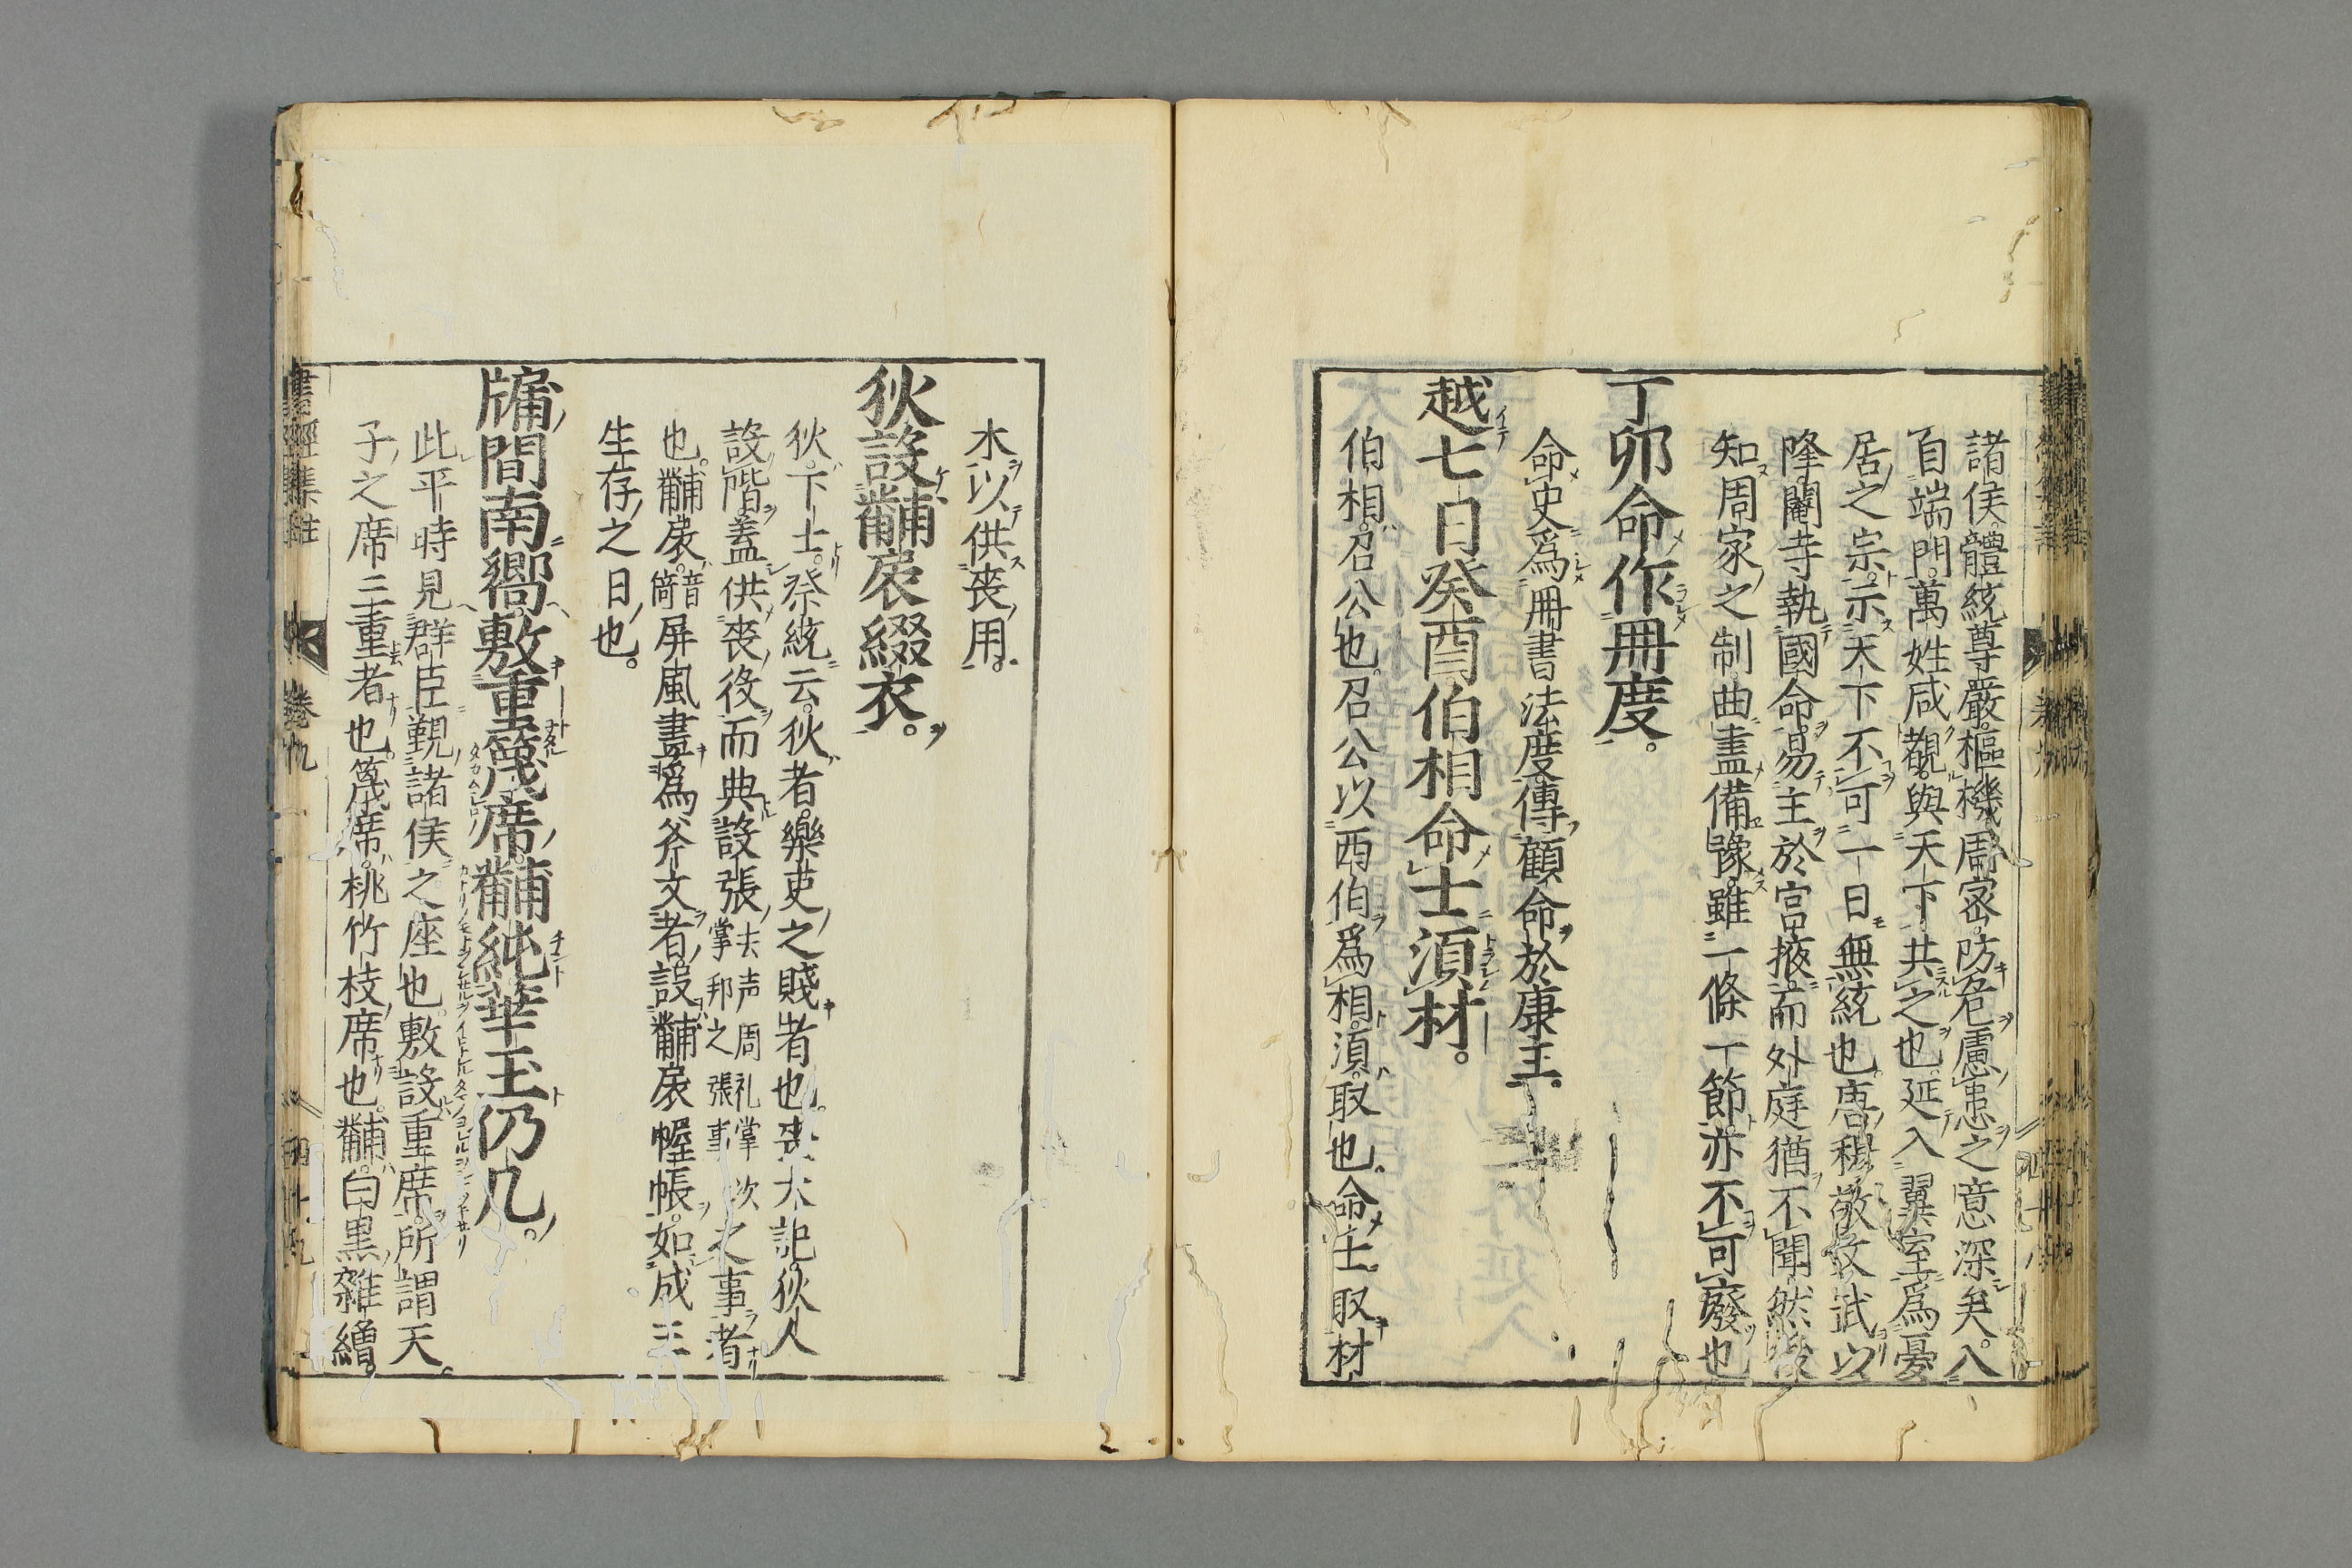 諸侯。體統尊嚴。樞機周密。防危慮患之意深矣。入
自端門。萬姓咸覩。與天下共之也。延入翼室。爲憂
居之宗。示天下不可一日無統也。唐穆敬文武以
降。閹寺執國命。易主於宮掖。而外庭猶不聞。然後
知周家之制。曲盡備豫。雖一條一節。亦不可廢也
丁卯命作冊度。
命史爲冊書法度。傳顧命於康王。
越七日癸酉伯相命士須材。
伯相。召公也。召公以西伯爲相。須。取也。命士取材
木。以供喪用。
狄設黼扆綴衣。
狄。下士。祭統云。狄者。樂吏之賤者也。喪大記。狄人
設階。蓋供喪役。而典設張去声周礼掌次掌邦之張事之事者
也。黼扆。音倚屏風畫爲斧文者。設黼扆幄帳。如成王
生存之日也。
牖間南嚮敷重篾席。黼純華玉仍几。
此平時見群臣。覲諸侯之座也。敷設重席。所謂天
子之席三重者也。篾席。桃竹枝席也。黼。白黒雜繒。
書經集註 卷九